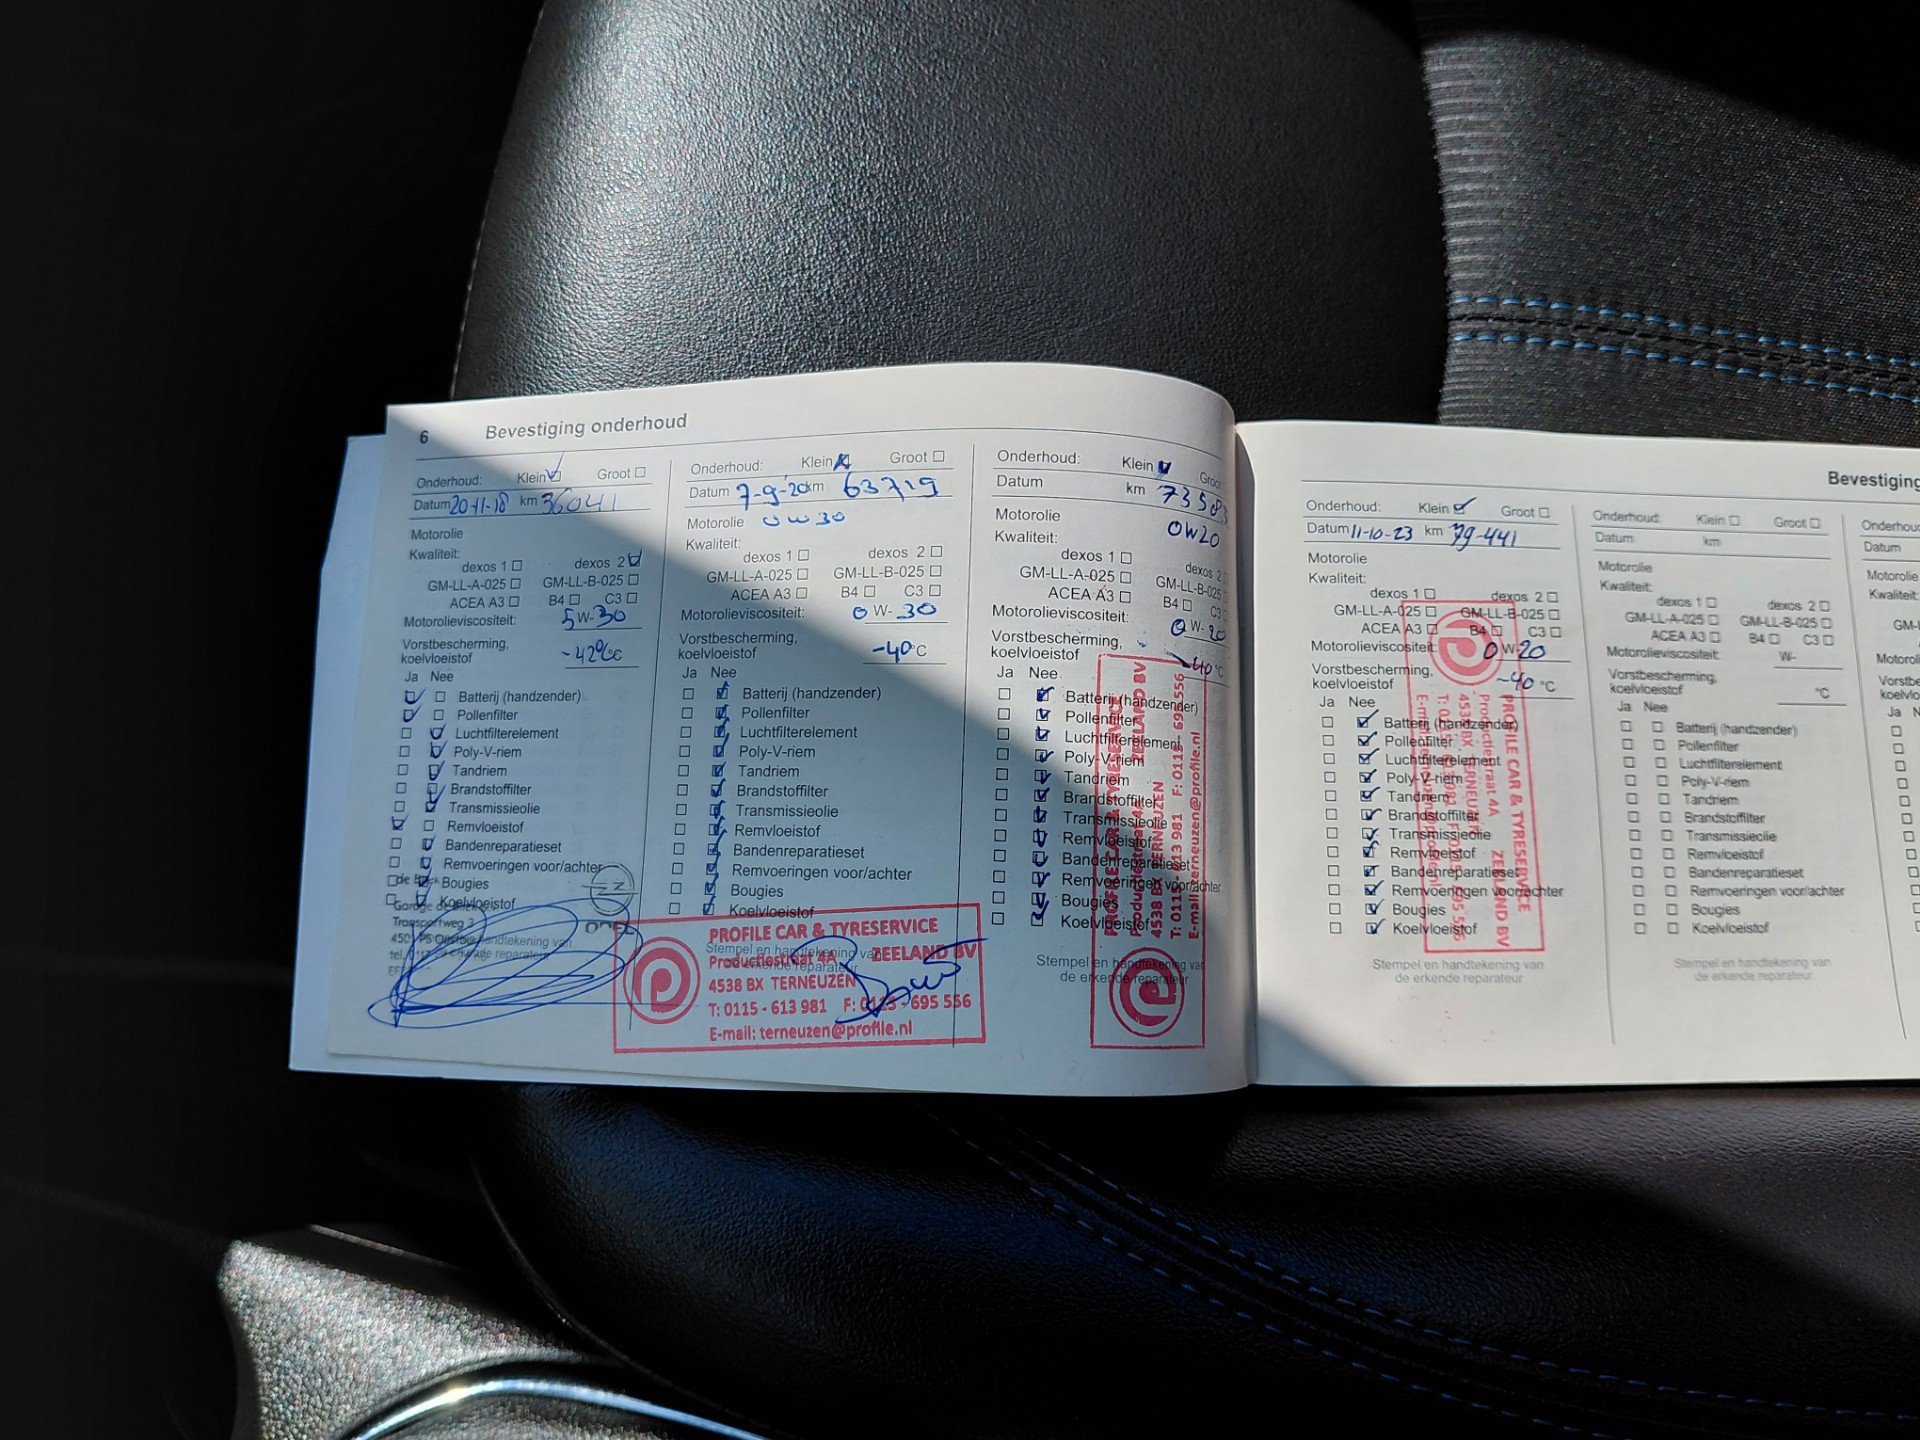 6 Bevestiging onderhoud
Onderhoud: Klein Groot
Datum 20-11-18 km 36041
Motorolie
Kwaliteit:
dexos 1 dexos 2
GM-LL-A-025 GM-LL-B-025
ACEA A3 B4 C3
Motorolieviscositeit: 5 W- 30
Vorstbescherming,
koelvloeistof -42°C
Ja Nee
Batterij (handzender)
Pollenfilter
Luchtfilterelement
Poly-V-riem
Tandriem
Brandstoffilter
Transmissieolie
Remvloeistof
Bandenreparatieset
Remvoeringen voor/achter
Bougies
Koelvloeistof
Transportweg 3
OPEL
Onderhoud: Klein Groot
Datum 7-9-'20 km 63719
Motorolie 0W30
Kwaliteit:
dexos 1 dexos 2
GM-LL-A-025 GM-LL-B-025
ACEA A3 B4 C3
Motorolieviscositeit: 0 W- 30
Vorstbescherming,
koelvloeistof -40°C
Ja Nee
Batterij (handzender)
Pollenfilter
Luchtfilterelement
Poly-V-riem
Tandriem
Brandstoffilter
Transmissieolie
Remvloeistof
Bandenreparatieset
Remvoeringen voor/achter
Bougies
Koelvloeistof
Stempel en handtekening van
PROFILE CAR & TYRESERVICE
ZEELAND BV
Productiestraat 4A
4538 BX TERNEUZEN
T: 0115 - 613 981 F: 0115 - 695 556
E-mail: terneuzen@profile.nl
Onderhoud: Klein
Datum km
Motorolie 0W20
Kwaliteit:
dexos 1 dexos 2
GM-LL-A-025 GM-LL-B-025
ACEA A3 B4 C3
Motorolieviscositeit: 0 W- 20
Vorstbescherming,
koelvloeistof -40°C
Ja Nee
Batterij (handzender)
Pollenfilter
Luchtfilterelement
Poly-V-riem
Tandriem
Brandstoffilter
Transmissieolie
Remvloeistof
Bandenreparatieset
Remvoeringen voor/achter
Bougies
Koelvloeistof
Stempel en handtekening van
de erkende reparateur
PROFILE CAR & TYRESERVICE
ZEELAND BV
Productiestraat 4A
4538 BX TERNEUZEN
T: 0115 - 613 981 F: 0115 - 695 556
E-mail: terneuzen@profile.nl
Bevestiging
Onderhoud: Klein Groot
Datum 11-10-23 km 79-441
Motorolie
Kwaliteit:
dexos 1 dexos 2
GM-LL-A-025 GM-LL-B-025
ACEA A3 B4 C3
Motorolieviscositeit: 0 W- 20
Vorstbescherming,
koelvloeistof -40 °C
Ja Nee
Batterij (handzender)
Pollenfilter
Luchtfilterelement
Poly-V-riem
Tandriem
Brandstoffilter
Transmissieolie
Remvloeistof
Bandenreparatieset
Remvoeringen voor/achter
Bougies
Koelvloeistof
Stempel en handtekening van
de erkende reparateur
PROFILE CAR & TYRESERVICE
ZEELAND BV
Productiestraat 4A
4538 BX TERNEUZEN
Onderhoud: Klein Groot
Datum km
Motorolie
Kwaliteit:
dexos 1 dexos 2
GM-LL-A-025 GM-LL-B-025
ACEA A3 B4 C3
Motorolieviscositeit: W-
Vorstbescherming,
koelvloeistof °C
Ja Nee
Batterij (handzender)
Pollenfilter
Luchtfilterelement
Poly-V-riem
Tandriem
Brandstoffilter
Transmissieolie
Remvloeistof
Bandenreparatieset
Remvoeringen voor/achter
Bougies
Koelvloeistof
Stempel en handtekening van
de erkende reparateur
Datum
Motorolie
Kwaliteit:
Ja